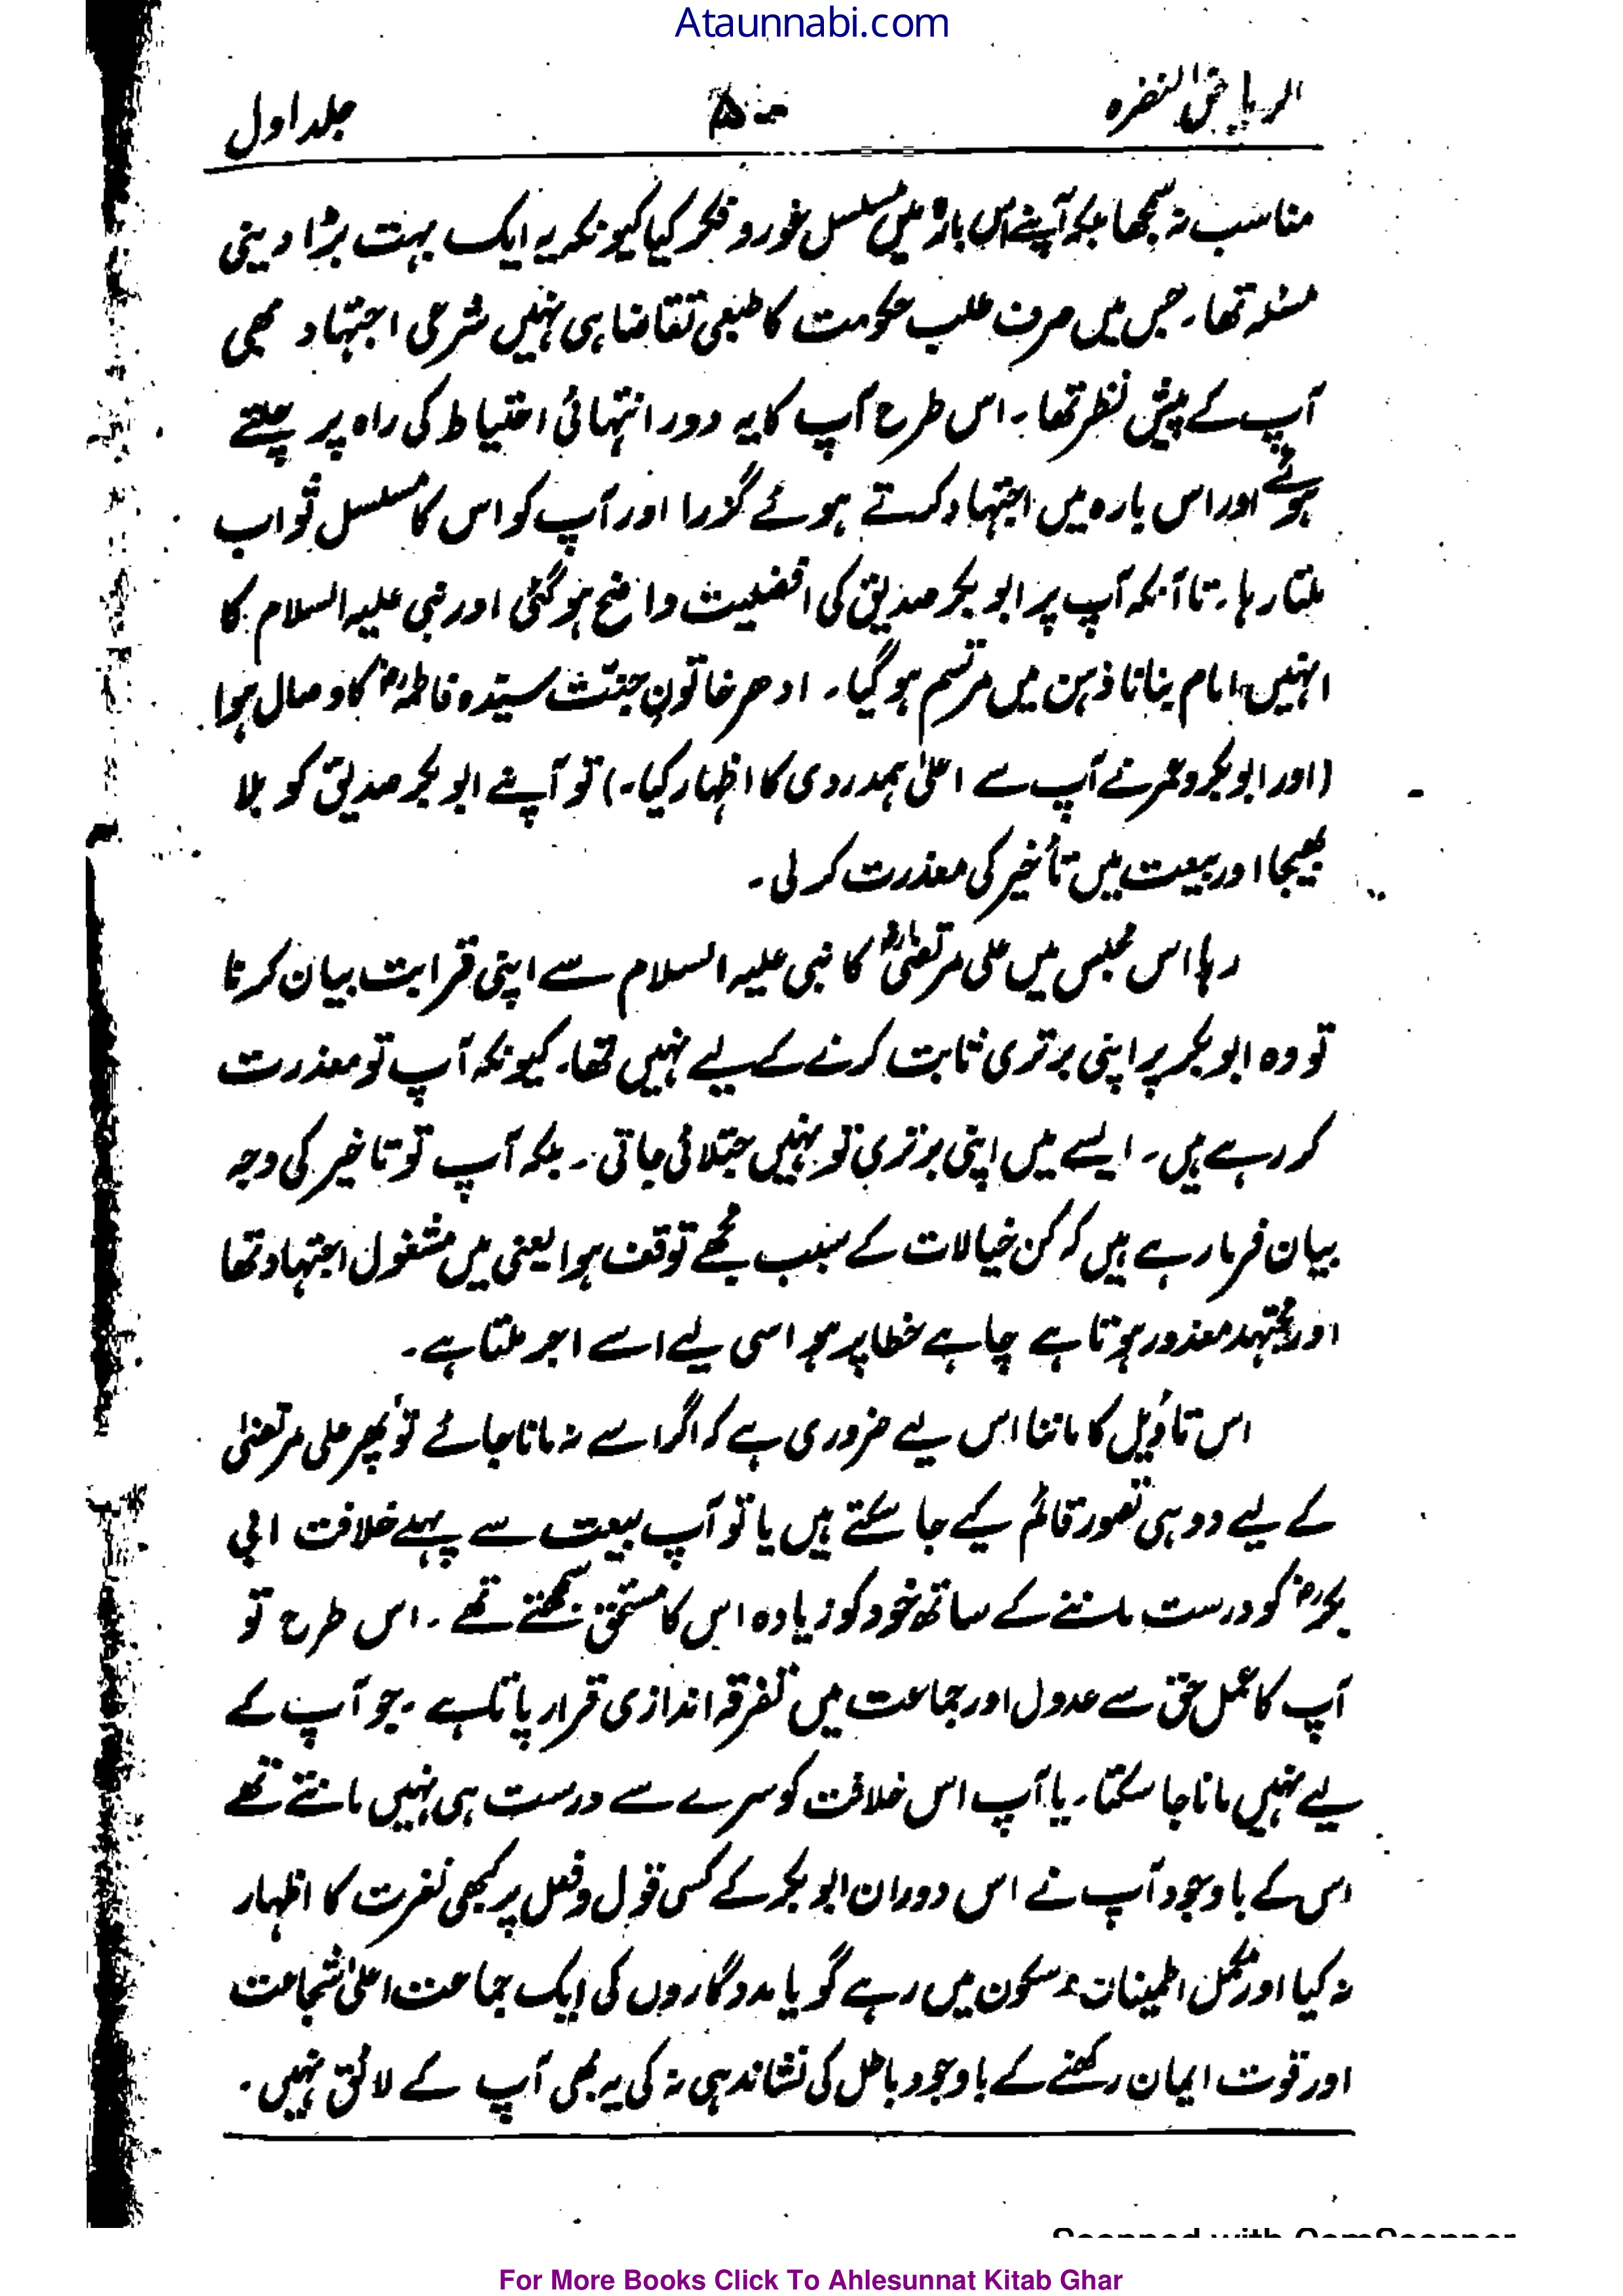 Ataunnabi.com
الریاض النضرہ
جلد اول
مناسب نہ سمجھا بلکہ آپنے اس بارہ میں مسلسل غور و فکر کیا کیونکہ یہ ایک بہت بڑا دینی
مسئلہ تھا۔ جس میں صرف طلب حکومت کا طبعی تقاضا ہی نہیں شرعی اجتہاد بھی
آپ کے پیش نظر تھا۔ اس طرح آپ کا یہ دور انتہائی احتیاط کی راہ پر چلتے
ہوئے اور اس بارہ میں اجتہاد کرتے ہوئے گزرا اور آپ کو اس کا مسلسل ثواب
ملتا رہا۔ تا آنکہ آپ پر ابو بکر صدیق کی افضلیت واضح ہو گئی اور نبی علیہ السلام کا
انہیں امام بنانا ذہن میں مرتسم ہو گیا۔ ادھر خاتونِ جنت سیدہ فاطمہؓ کا وصال ہوا
(اور ابو بکر و عمر نے آپ سے اعلیٰ ہمدردی کا اظہار کیا۔) تو آپنے ابو بکر صدیق کو بلا
بھیجا اور بیعت میں تأخیر کی معذرت کر لی۔
رہا اس مجلس میں علی مرتضیٰؓ کا نبی علیہ السلام سے اپنی قرابت بیان کرنا
تو وہ ابو بکر پر اپنی برتری ثابت کرنے کے لیے نہیں تھا۔ کیونکہ آپ تو معذرت
کر رہے ہیں۔ ایسے میں اپنی برتری تو نہیں جتلائی جاتی۔ بلکہ آپ تو تاخیر کی وجہ
بیان فرما رہے ہیں کہ کن خیالات کے سبب مجھے توقف ہوا یعنی میں مشغول اجتہاد تھا
اور مجتہد معذور ہوتا ہے چاہے خطا پر ہو اسی لیے اسے اجر ملتا ہے۔
اس تاویل کا ماننا اس لیے ضروری ہے کہ اگر اسے نہ مانا جائے تو پھر علی مرتضیٰ
کے لیے دو ہی تصور قائم کیے جا سکتے ہیں یا تو آپ بیعت سے پہلے خلافت ابی
بکرؓ کو درست ماننے کے ساتھ خود کو زیادہ اس کا مستحق سمجھتے تھے۔ اس طرح تو
آپ کا عمل حق سے عدول اور جماعت میں تفرقہ اندازی قرار پاتا ہے۔ جو آپ کے
لیے نہیں مانا جا سکتا۔ یا آپ اس خلافت کو سرے سے درست ہی نہیں مانتے تھے
اس کے باوجود آپ نے اس دوران ابو بکر کے کسی قول و فعل پر کبھی نفرت کا اظہار
نہ کیا اور مکمل اطمینان و سکون میں رہے گویا مددگاروں کی ایک جماعت اعلیٰ شجاعت
اور قوت ایمان رکھنے کے باوجود باطل کی نشاندہی نہ کی یہ بھی آپ کے لائق نہیں۔
Scanned with CamScanner
For More Books Click To Ahlesunnat Kitab Ghar